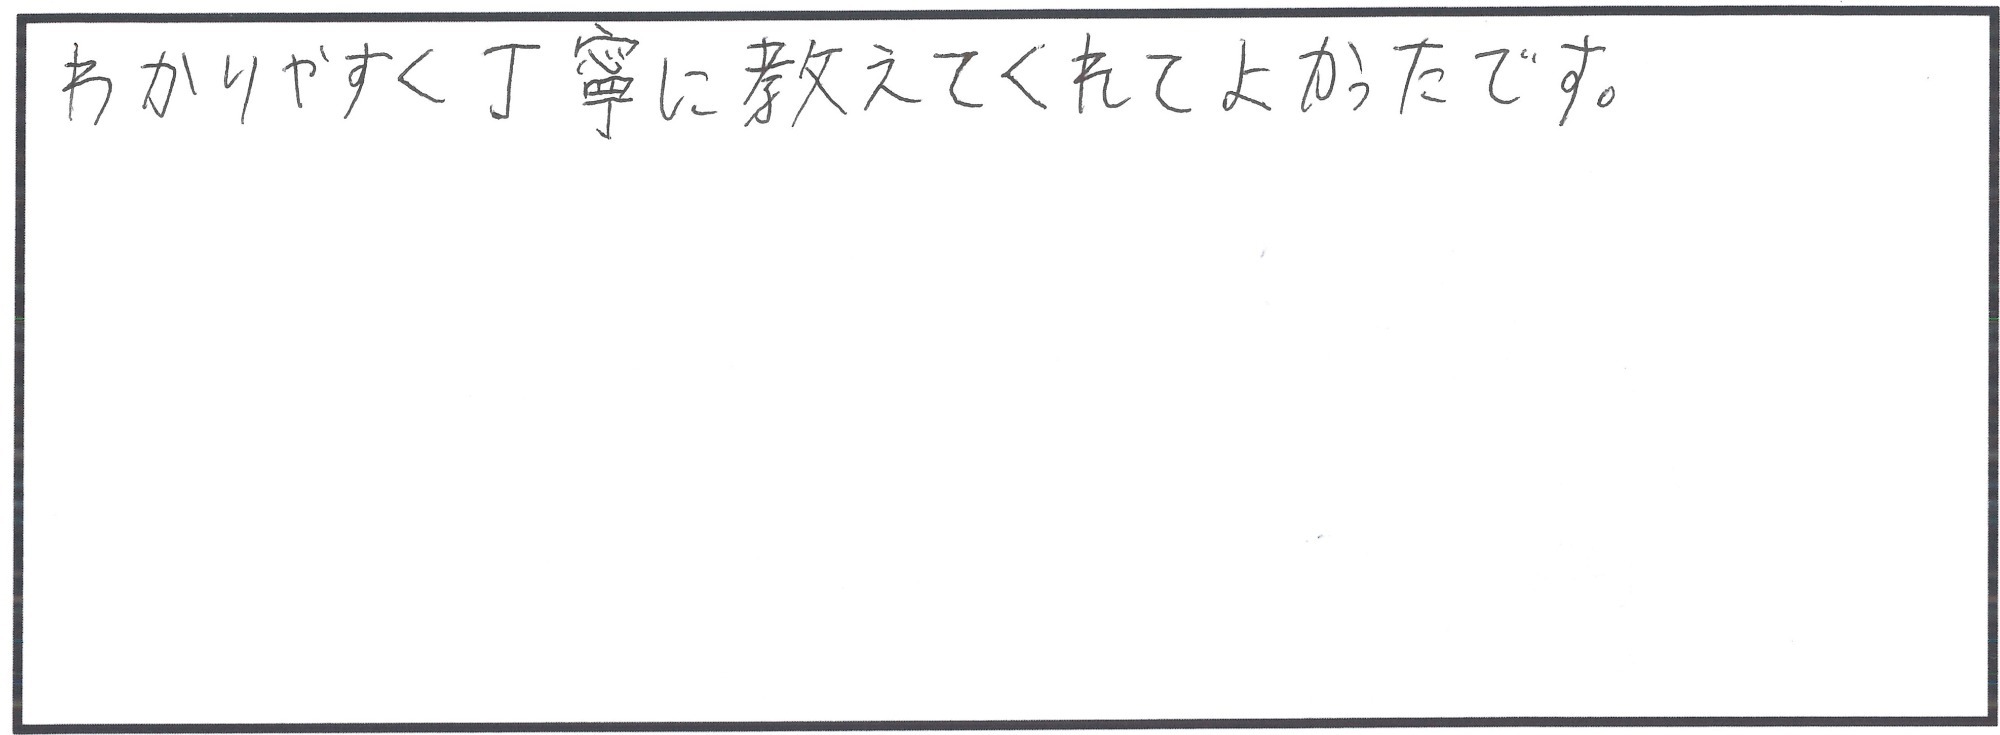 わかりやすく丁寧に教えてくれてよかったです。